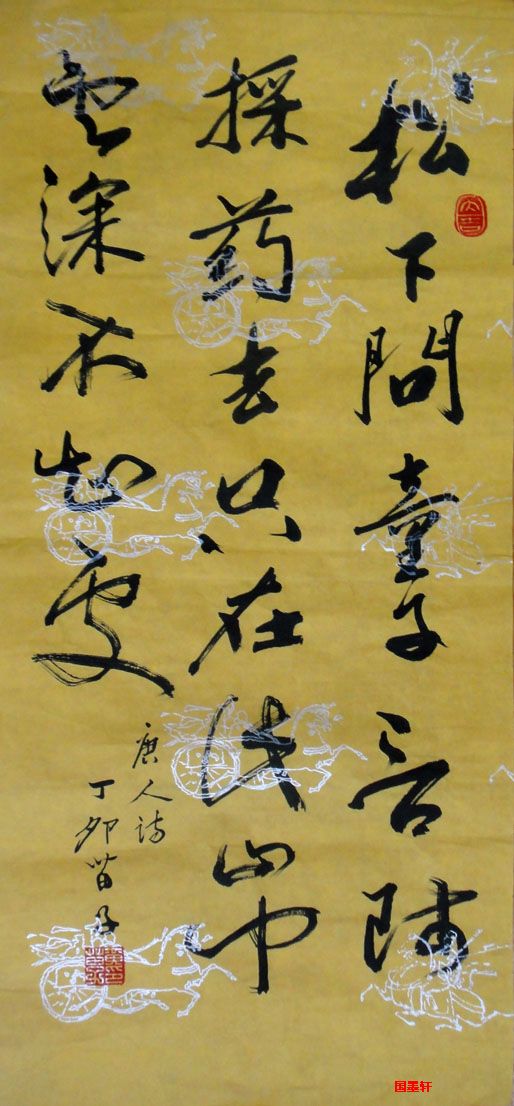 松下問童子言師
採药去只在此山中
雲深不知處
唐人詩
丁卯苗子
国墨轩